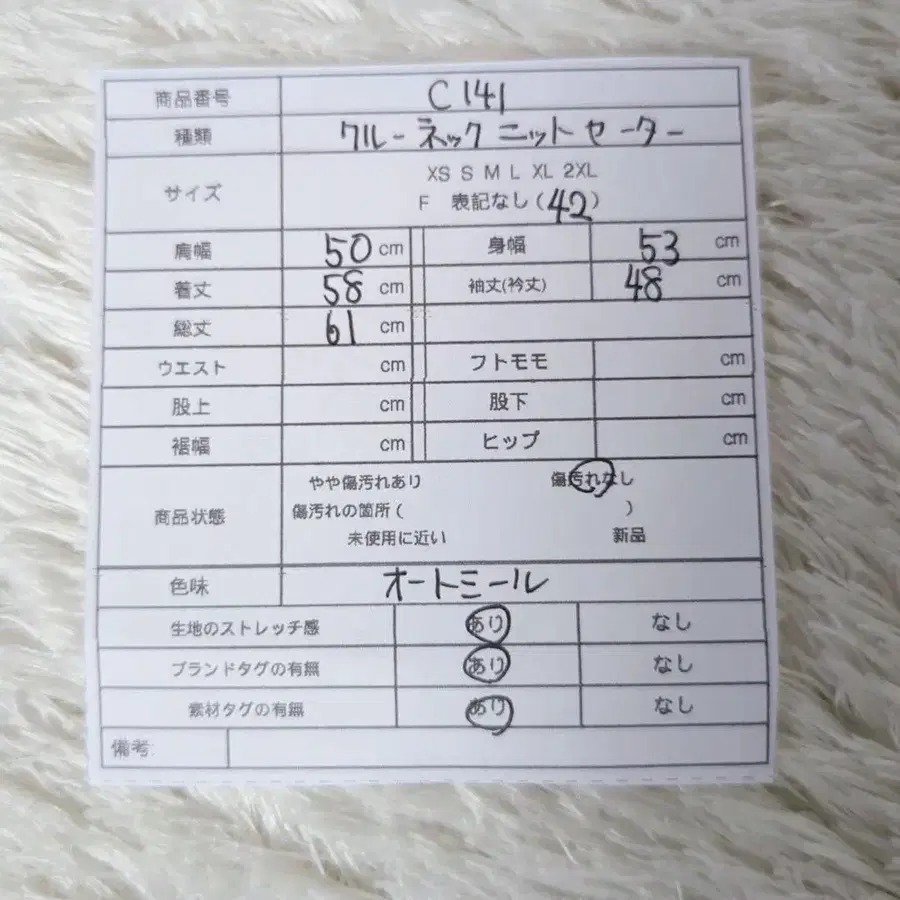 商品番号 C141
種類 クルーネック ニットセーター
サイズ XS S M L XL 2XL
F 表記なし(42)
肩幅 50 cm 身幅 53 cm
着丈 58 cm 袖丈(裄丈) 48 cm
総丈 61 cm
ウエスト cm フトモモ cm
股上 cm 股下 cm
裾幅 cm ヒップ cm
やや傷汚れあり 傷汚れなし
商品状態 傷汚れの箇所( )
未使用に近い 新品
色味 オートミール
生地のストレッチ感 あり なし
ブランドタグの有無 あり なし
素材タグの有無 あり なし
備考: